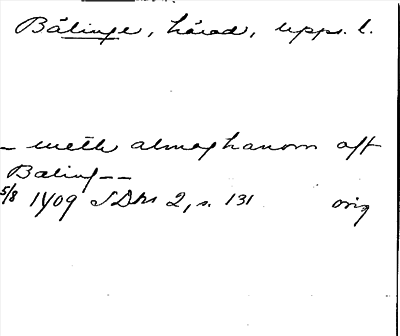 Bälinge, härad, Upps. l.
– meth almoghanom aff
Baling--
5/8 1409 SDns 2, s. 131 orig